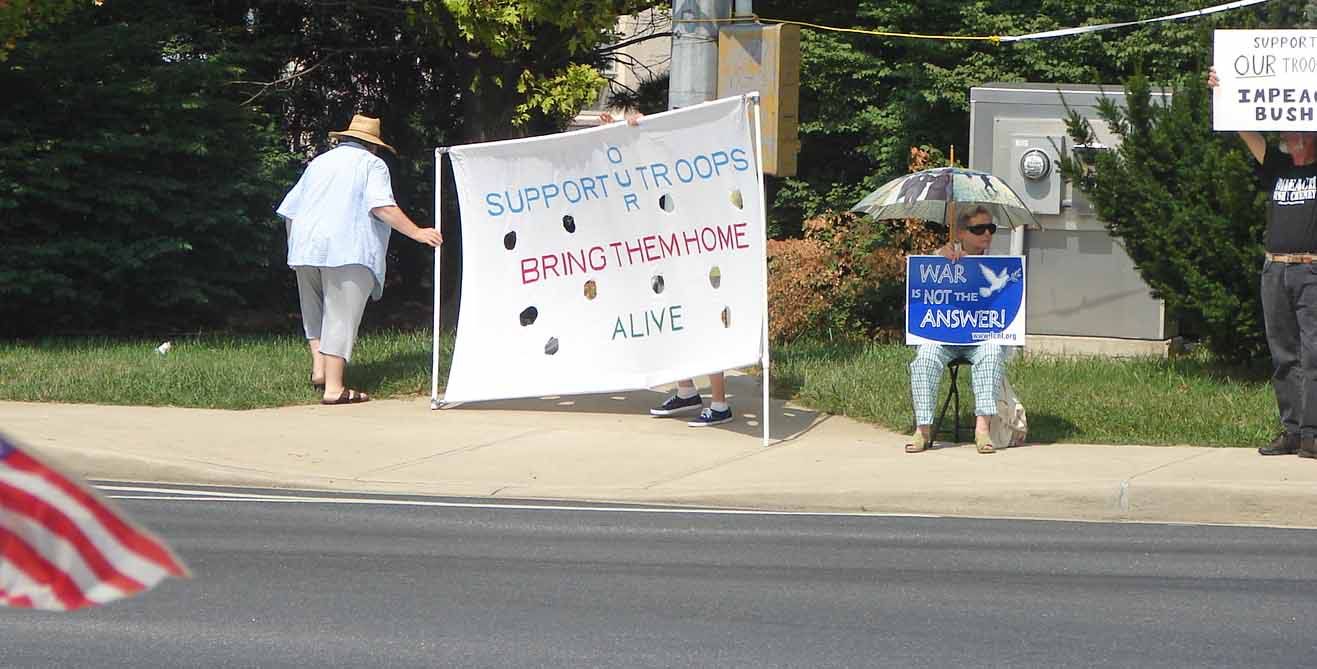 SUPPORT OUR TROOPS
BRING THEM HOME
ALIVE
WAR
IS NOT THE
ANSWER!
www.fcnl.org
SUPPORT
OUR TROO
IMPEAC
BUSH